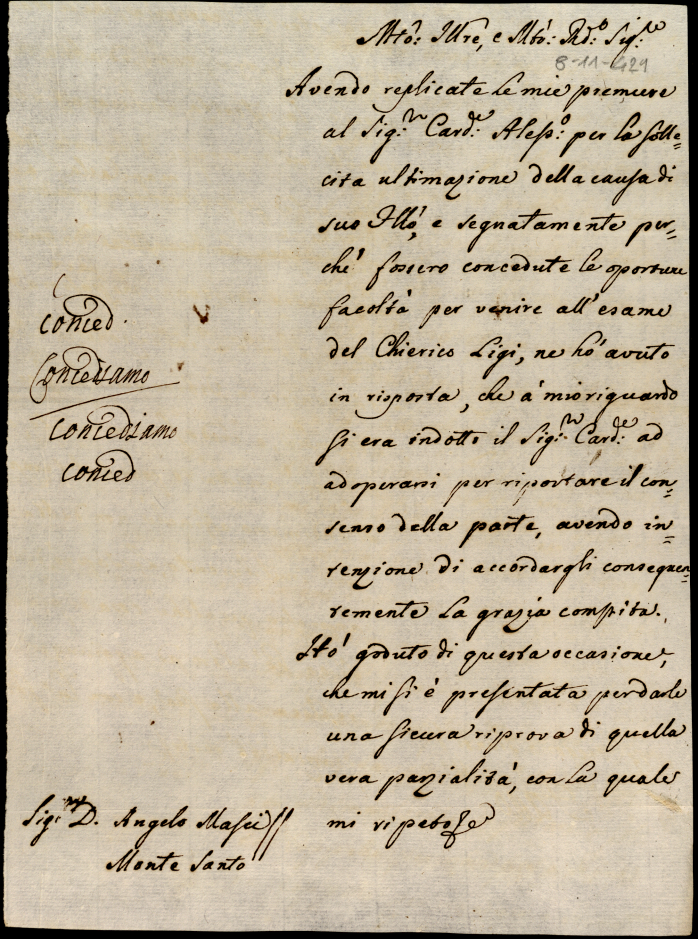 Mto: Illre, e Mto: Rdo: Sigre
8-11-429
Avendo replicate le mie premure
al Sig:r Card:e Aless:o per la solle=
cita ultimazione della causa di
suo Illo, e segnatamente per=
chè fossero concedute le oportune
facoltà per venire all'esame
del Chierico Ligi, ne hò avuto
in risposta, che à mio riguardo
si era indotto il Sig:r Card:e ad
adoperarsi per riportare il con=
senso della parte, avendo in=
tenzione di accordargli conseguen=
temente la grazia compita.
Hò goduto di questa occasione,
che mi si è presentata per darle
una sicura riprova di quella
vera parzialità, con la quale
mi ripeto
concied.
Conciedsamo
conciedsamo
concied
Sig:r D. Angelo Masci
Monte Santo